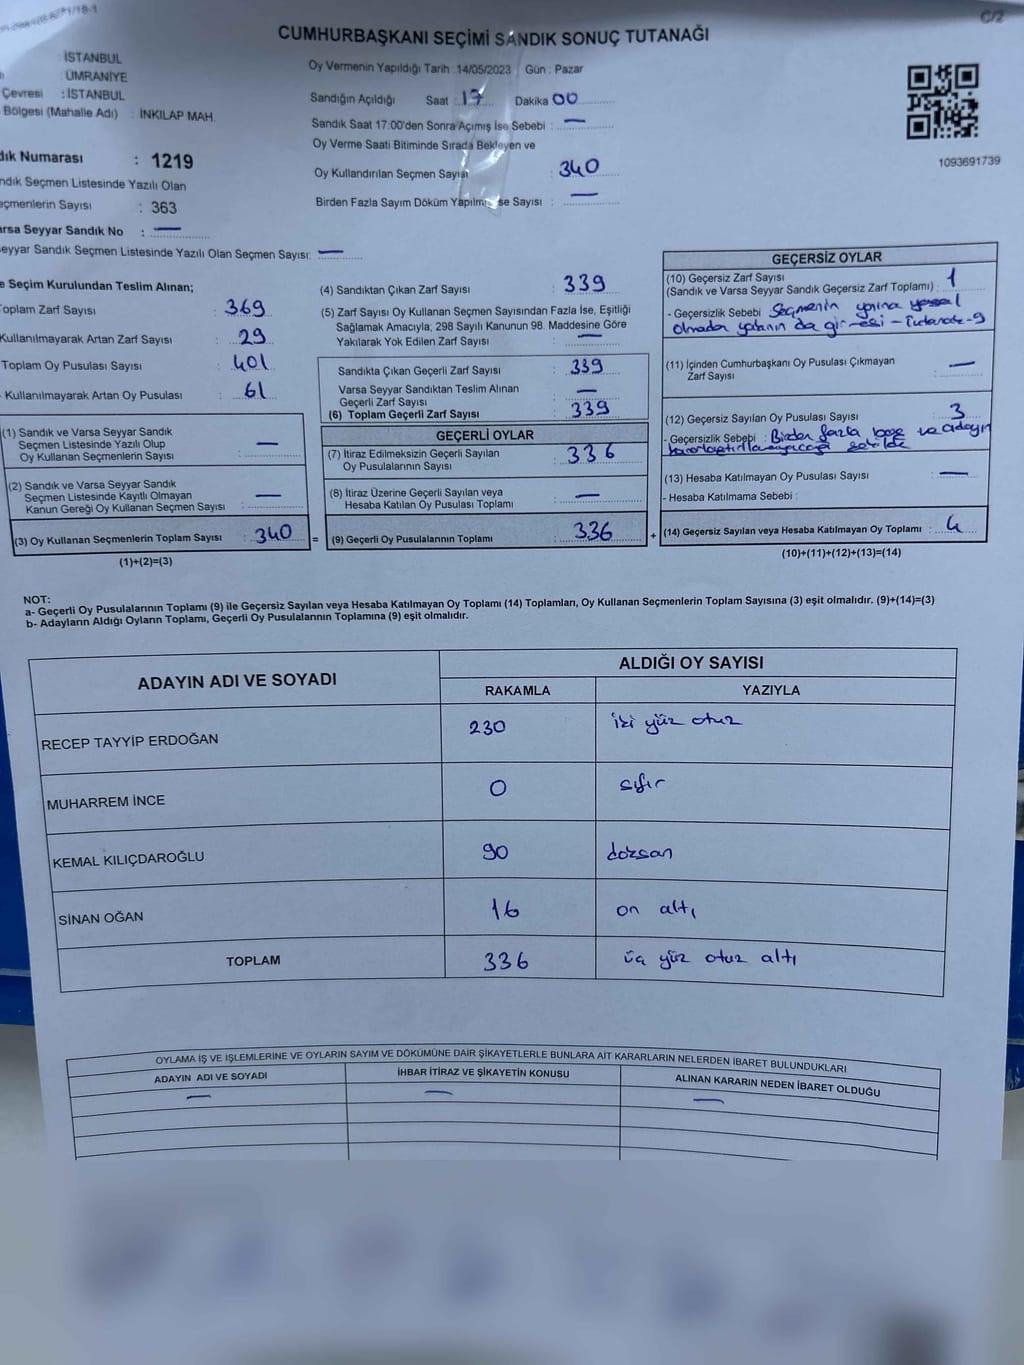 C/2
CUMHURBAŞKANI SEÇİMİ SANDIK SONUÇ TUTANAĞI
: İSTANBUL
: ÜMRANİYE
Çevresi : İSTANBUL
Bölgesi (Mahalle Adı) : İNKILAP MAH.
dık Numarası : 1219
ndık Seçmen Listesinde Yazılı Olan
eçmenlerin Sayısı : 363
arsa Seyyar Sandık No : —
eyyar Sandık Seçmen Listesinde Yazılı Olan Seçmen Sayısı: —
Oy Vermenin Yapıldığı Tarih : 14/05/2023 Gün : Pazar
Sandığın Açıldığı Saat : 17 Dakika 00
Sandık Saat 17:00'den Sonra Açımış İse Sebebi : —
Oy Verme Saati Bitiminde Sırada Bekleyen ve
Oy Kullandırılan Seçmen Sayısı : 340
Birden Fazla Sayım Döküm Yapılmış se Sayısı : —
1093691739
e Seçim Kurulundan Teslim Alınan;
oplam Zarf Sayısı : 369
Kullanılmayarak Artan Zarf Sayısı : 29
Toplam Oy Pusulası Sayısı : 401
Kullanılmayarak Artan Oy Pusulası : 61
(1) Sandık ve Varsa Seyyar Sandık
Seçmen Listesinde Yazılı Olup
Oy Kullanan Seçmenlerin Sayısı : —
(2) Sandık ve Varsa Seyyar Sandık
Seçmen Listesinde Kayıtlı Olmayan
Kanun Gereği Oy Kullanan Seçmen Sayısı : —
(3) Oy Kullanan Seçmenlerin Toplam Sayısı : 340 =
(1)+(2)=(3)
(4) Sandıktan Çıkan Zarf Sayısı : 339
(5) Zarf Sayısı Oy Kullanan Seçmen Sayısından Fazla İse, Eşitliği
Sağlamak Amacıyla; 298 Sayılı Kanunun 98. Maddesine Göre
Yakılarak Yok Edilen Zarf Sayısı : —
Sandıkta Çıkan Geçerli Zarf Sayısı : 339
Varsa Seyyar Sandıktan Teslim Alınan
Geçerli Zarf Sayısı : —
(6) Toplam Geçerli Zarf Sayısı : 339
GEÇERLİ OYLAR
(7) İtiraz Edilmeksizin Geçerli Sayılan
Oy Pusulalarının Sayısı : 336
(8) İtiraz Üzerine Geçerli Sayılan veya
Hesaba Katılan Oy Pusulası Toplamı : —
(9) Geçerli Oy Pusulalarının Toplamı : 336 +
GEÇERSİZ OYLAR
(10) Geçersiz Zarf Sayısı
(Sandık ve Varsa Seyyar Sandık Geçersiz Zarf Toplamı) : 1
- Geçersizlik Sebebi : Seçmenin yanına yasal
olmadan
(11) İçinden Cumhurbaşkanı Oy Pusulası Çıkmayan
Zarf Sayısı : —
(12) Geçersiz Sayılan Oy Pusulası Sayısı : 3
- Geçersizlik Sebebi : Birden fazla
(13) Hesaba Katılmayan Oy Pusulası Sayısı : —
- Hesaba Katılmama Sebebi :
(14) Geçersiz Sayılan veya Hesaba Katılmayan Oy Toplamı : 4
(10)+(11)+(12)+(13)=(14)
NOT:
a- Geçerli Oy Pusulalarının Toplamı (9) ile Geçersiz Sayılan veya Hesaba Katılmayan Oy Toplamı (14) Toplamları, Oy Kullanan Seçmenlerin Toplam Sayısına (3) eşit olmalıdır. (9)+(14)=(3)
b- Adayların Aldığı Oyların Toplamı, Geçerli Oy Pusulalarının Toplamına (9) eşit olmalıdır.
ADAYIN ADI VE SOYADI ALDIĞI OY SAYISI
RAKAMLA YAZIYLA
RECEP TAYYİP ERDOĞAN 230 iki yüz otuz
MUHARREM İNCE 0 sıfır
KEMAL KILIÇDAROĞLU 90 doksan
SİNAN OĞAN 16 on altı
TOPLAM 336 üç yüz otuz altı
OYLAMA İŞ VE İŞLEMLERİNE VE OYLARIN SAYIM VE DÖKÜMÜNE DAİR ŞİKAYETLERLE BUNLARA AİT KARARLARIN NELERDEN İBARET BULUNDUKLARI
ADAYIN ADI VE SOYADI İHBAR İTİRAZ VE ŞİKAYETİN KONUSU ALINAN KARARIN NEDEN İBARET OLDUĞU
— — —